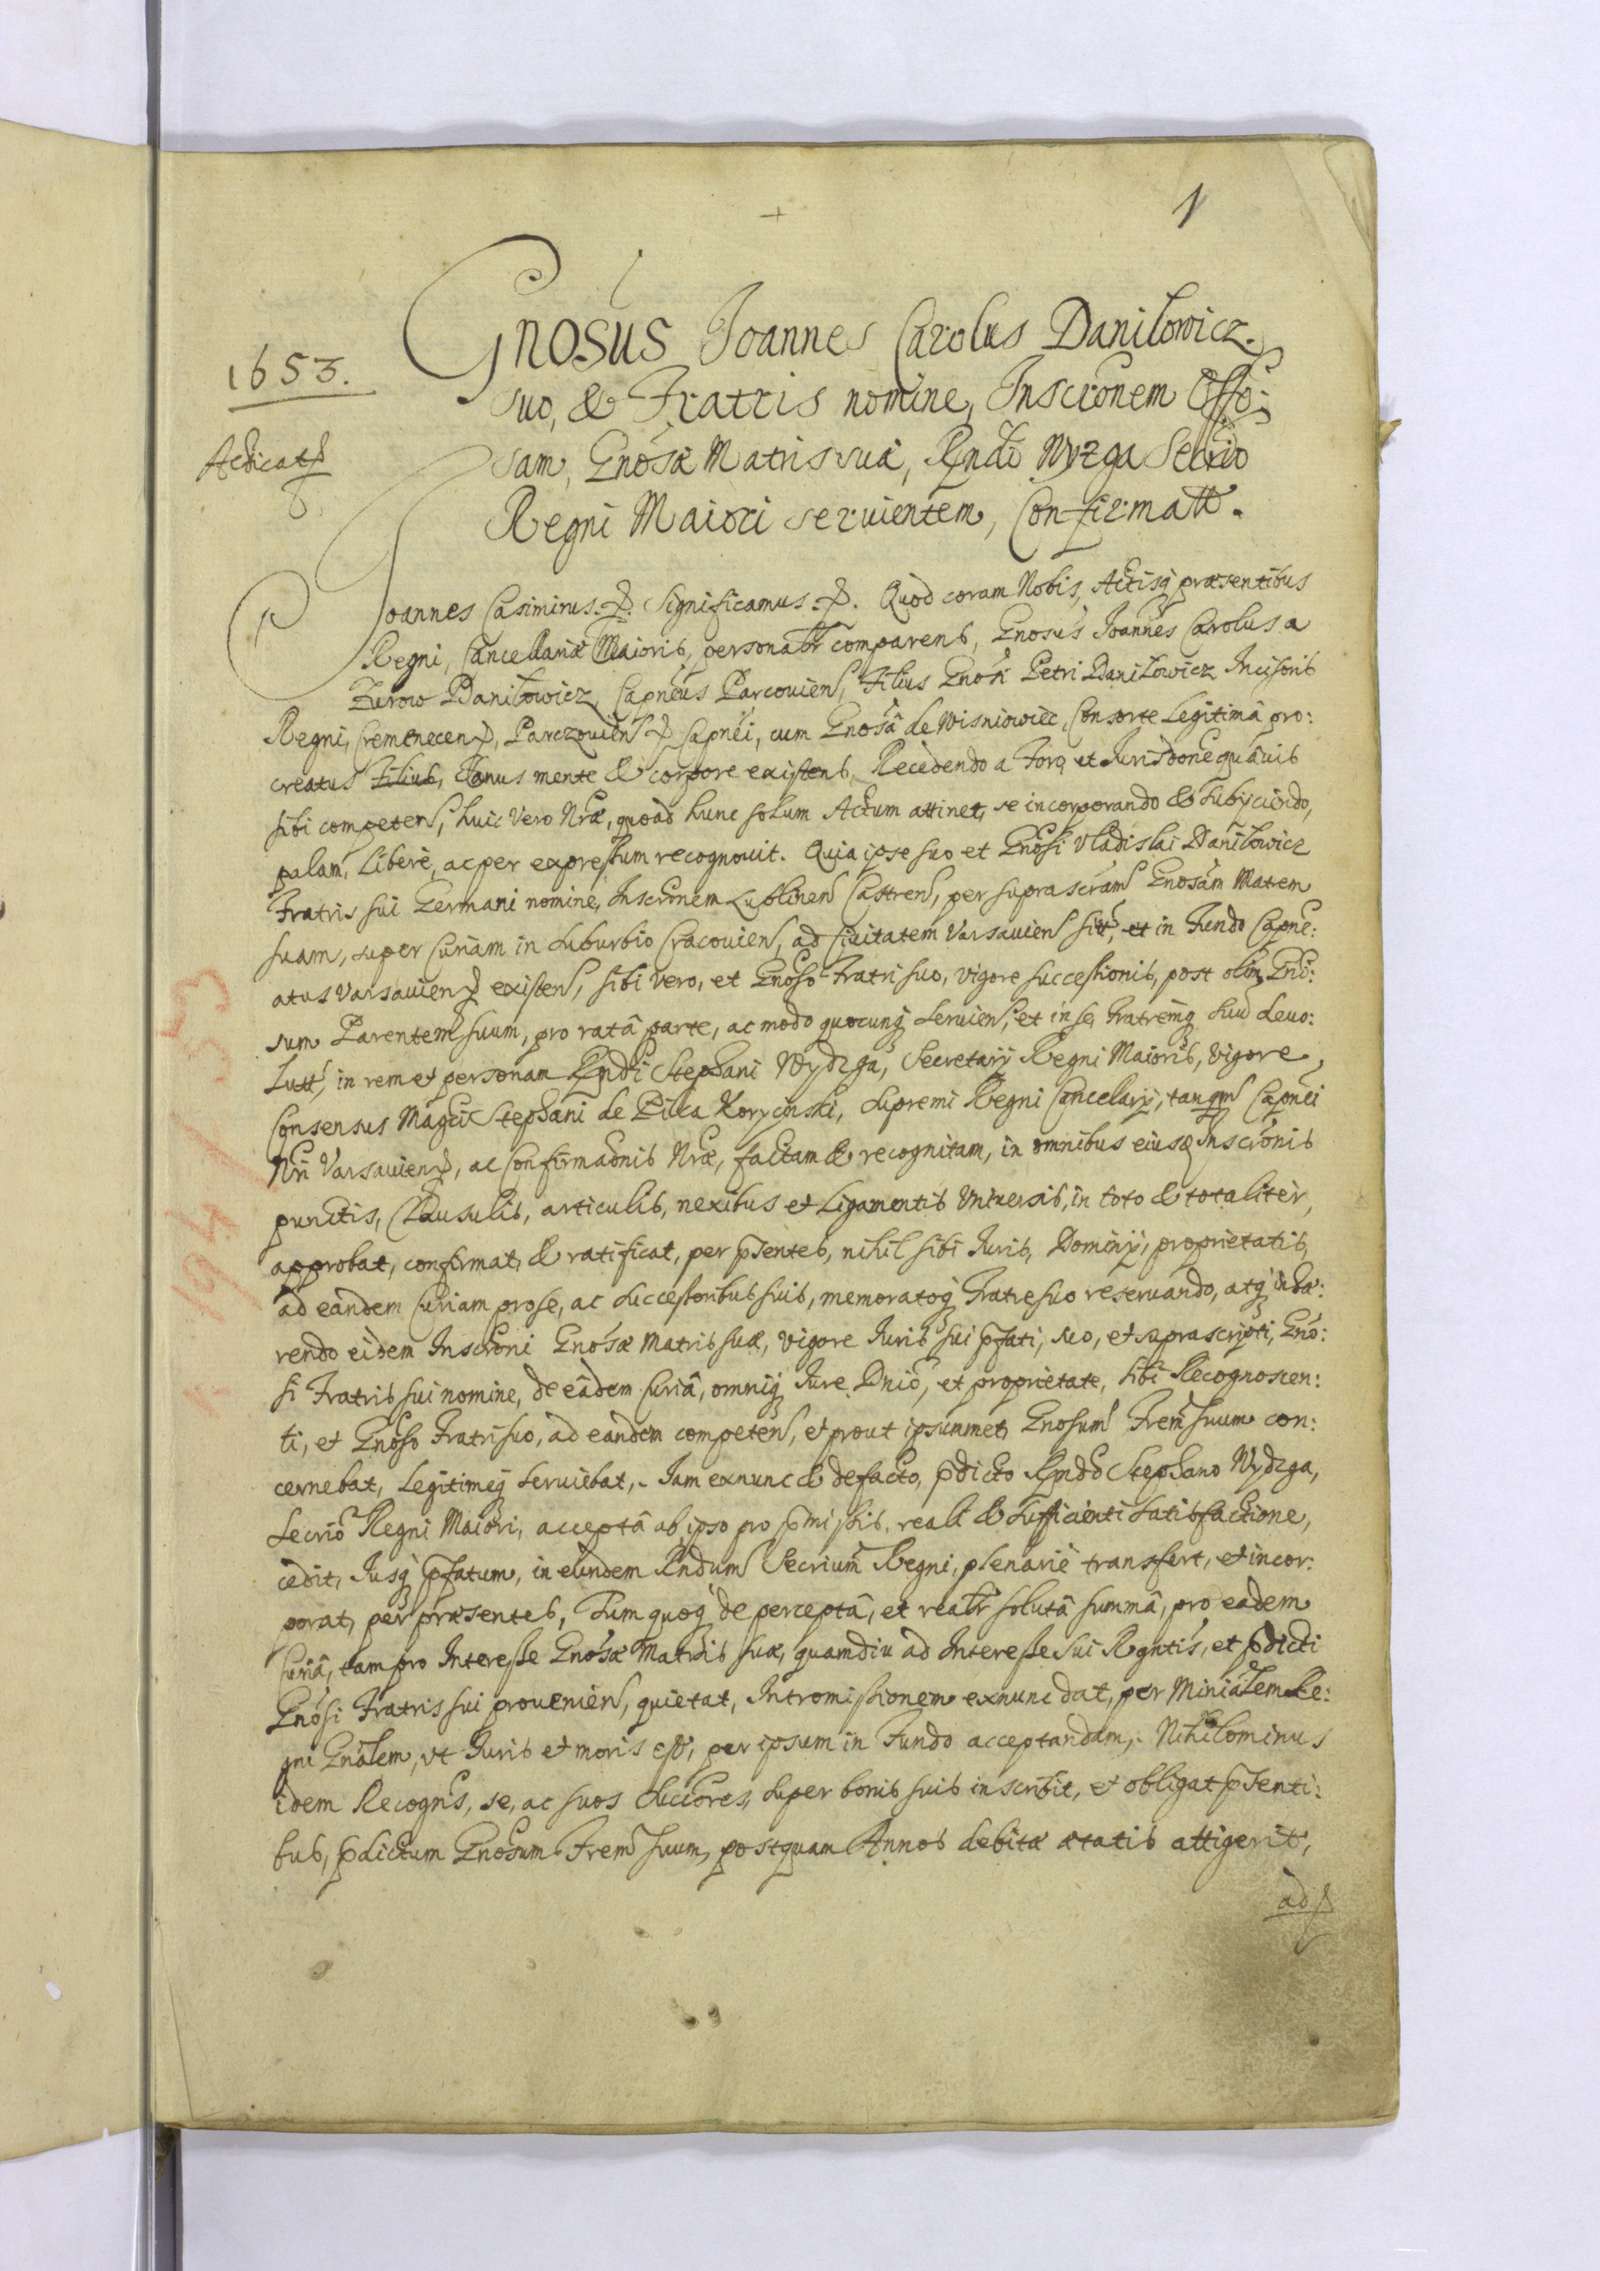 1
1653.
Gnosus Joannes Carolus Daniłowicz.
suo, & Fratris nomine, Inscrōnem
sam, Gnosæ Matris suæ, Rndo Wyzga Secrio
Regni Maiori seruientem, Confirmatt.
Joannes Casimirus. Significamus. Quod coram Nobis, Actisq præsentibus
Regni, Cancellariæ Maioris, personatr comparens, Gnosus Joannes Carolus a
Zurow Daniłowicz, Capneus Parcouiens, Filius Gnosi Petri Daniłowicz Incisoris
Regni, Cremenecen, Parczouiens Capnei, cum Gnosâ de Wisniowiec, Consorte Legitimâ pro:
creatus Filius, sanus mente & corpore existens, Recedendo a Foro et Jurisdone quâuis
sibi competens, huic vero Nræ, quoad hunc solum Actum attinet, se incorporando & subyciendo,
palam, Liberè, ac per expressum recognouit. Quia ipse suo et Gnosi Vladislai Daniłowicz
Fratris sui Germani nomine, Inscronem Lublinens Castrens, per suprascram Gnosam Matrem
suam, super Curiam in suburbio Cracouiens, ad Ciuitatem Varsauiens sitt, et in Fundo Capne:
atus Varsauien existens, sibi vero, et Gnoso Fratri suo, vigore successionis, post olim Gno:
sum Parentem suum, pro ratâ parte, ac modo quocunq seruiens, et in se, Fratremq suū deuo:
lutt, in rem et personam Rndi Stephani Wydzga, Secretarij Regni Maioris, vigore
Consensus Magci Stephani de Pilca Korycinski, supremi Regni Cancelarij, tanqm Capnei
Nri Varsauien, ac Confirmaonis Nræ, factam & recognitam, in omnibus eiusq Inscronis
punctis, Clausulis, articulis, nexibus et Ligamentis Vniuersis, in toto & totaliter,
approbat, confirmat, & ratificat, per psentes, nihil sibi Juris, Dominij, proprietatis,
ad eandem Curiam pro se, ac successoribus suis, memoratoq Fratre suo reseruando, atq inhæ:
rendo eidem Inscroni Gnosæ Matris suæ, vigore Juris sui pfati, suo, et suprascripti, Gno:
si Fratris sui nomine, de eâdem Curiâ, omniq Jure Dnio, et proprietate, sibi Recognoscen:
ti, et Gnoso Fratri suo, ad eandem competens, et prout ipsummet Gnosum Frem suum con:
cernebat, Legitimeq seruiebat, Jam exnunc & defacto, pdicto Rndo Stephano Wydzga,
Secrio Regni Maiori, acceptâ ab ipso pro pmissis, reali & sufficienti satisfactione,
cedit, Jusq pfatum, in eundem Rndum Secrium Regni, plenariè transfert, et incor:
porat, per præsentes, Tum quoq de perceptâ, et realr solutâ summâ, pro eadem
Curiâ, tam pro Interesse Gnosæ Matris suæ, quamdiu ad Interesse sui Rgntis, et pdicti
Gnosi Fratris sui prouenien, quietat, Intromissionem exnunc dat, per Minialem Re:
gni Gnalem, vt Juris et moris est, per ipsum in Fundo acceptandam, Nihilominus
idem Recogns, se, ac suos succores, super bonis suis inscribit, et obligat psenti:
bus, pdictum Gnosum Frem suum, postquam Annos debitæ ætatis attigerit,
ad